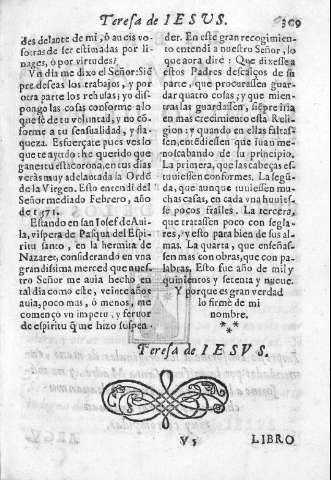 Teresa de IESVS. 309
des delante de mi, ò aueis vo-
sotras de ser estimadas por li-
nages, ò por virtudes?
Vn dia me dixo el Señor: Siē
pre deseas los trabajos, y por
otra parte los rehusas; yo dis-
pongo las cosas conforme a lo
que sè de tu voluntad, y no cō-
forme a tu sensualidad, y fla-
queza. Esfuerçate pues ves lo
que te ayudo: he querido que
ganes tu esta corona, en tus dias
veràs muy adelantada la Ordē
de la Virgen. Esto entendi del
Señor mediado Febrero, año
de 1571.
Estando en san Iosef de Aui-
la, vispera de Pasqua del Espi-
ritu santo, en la hermita de
Nazaret, considerando en vna
grandissima merced que nues-
tro Señor me auia hecho en
tal dia como este, veinte años
auia, poco mas, ò menos, me
començò vn impetu, y feruor
de espiritu q̃ me hizo suspen-
der. En este gran recogimien-
to entendi a nuestro Señor, lo
que aora dirè: Que dixesse a
estos Padres descalços de su
parte, que procurassen guar-
dar quatro cosas; y que mien-
tras las guardassen, siēpre iria
en mas crecimiento esta Reli-
gion: y quando en ellas faltas-
sen, entēdiessen que iuan me-
noscabando de su principio.
La primera, que las cabeças es-
tuuiessen conformes. La segū-
da, que aunque tuuiessen mu-
chas casas, en cada vna huuies-
se pocos frailes. La tercera,
que tratassen poco con segla-
res, y esto para bien de sus al-
mas. La quarta, que enseñas-
sen mas con obras, que con pa-
labras. Esto fue año de mil y
quinientos y setenta y nueue.
Y porque es gran verdad
lo firmè de mi
nombre.
***
Teresa de IESVS.
V5 LIBRO